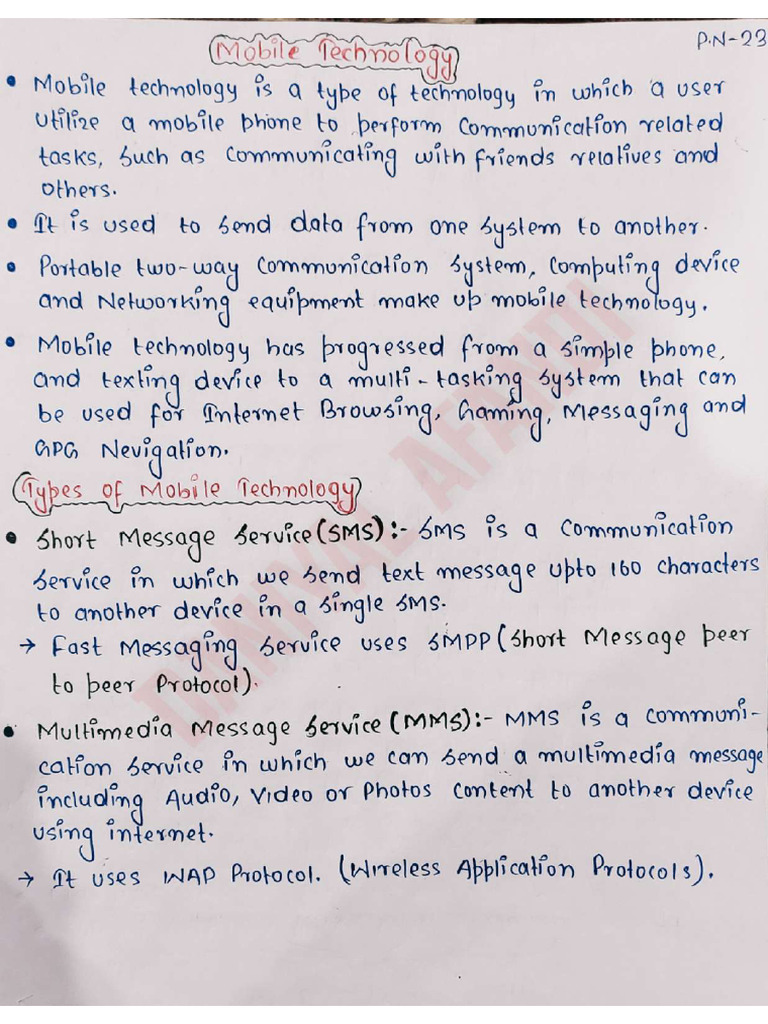 Mobile Technology
P.N-23
• Mobile technology is a type of technology in which a user
utilize a mobile phone to perform communication related
tasks, such as communicating with friends relatives and
others.
• It is used to send data from one system to another.
• Portable two-way communication system, computing device
and Networking equipment make up mobile technology.
• Mobile technology has progressed from a simple phone,
and texting device to a multi-tasking system that can
be used for Internet Browsing, Gaming, Messaging and
GPG Nevigation.
Types of Mobile Technology
• Short Message Service (SMS):- SMS is a communication
service in which we send text message upto 160 characters
to another device in a single SMS.
→ Fast Messaging Service uses SMPP (Short Message peer
to peer Protocol).
• Multimedia Message Service (MMS):- MMS is a communi-
cation service in which we can send a multimedia message
including Audio, Video or Photos content to another device
using internet.
→ It uses WAP Protocol. (Wireless Application Protocols).
DANIYAL AFANDI